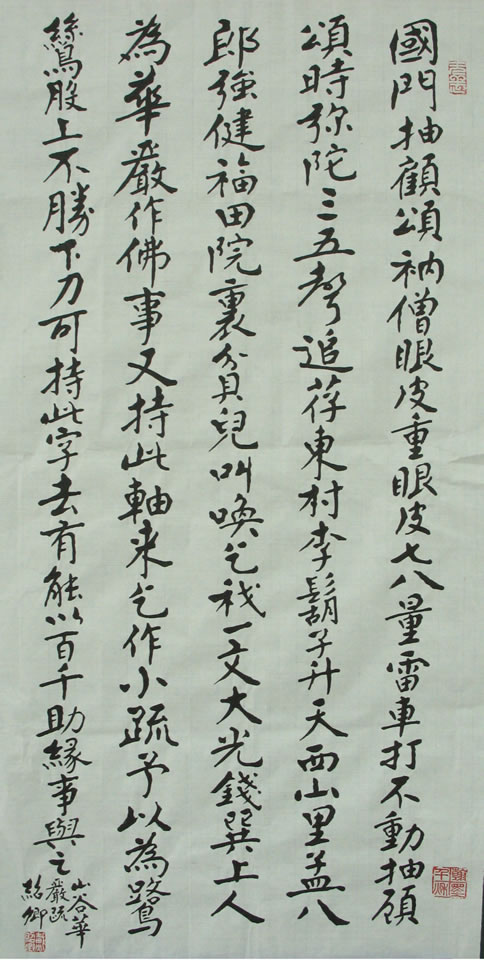 國門抽顧頌衲僧眼皮重眼皮七八量雷車打不動抽顧
頌時弥陀三五聲追荐東村李鬍子升天西山里孟八
郎強健福田院裏貧兒叫喚乞我一文大光錢巽上人
為華嚴作佛事又持此軸来乞作小疏予以為鷺
鷥股上不勝下刀可持此字去有能以百千助緣事與之
山谷華
嚴疏
紹卿